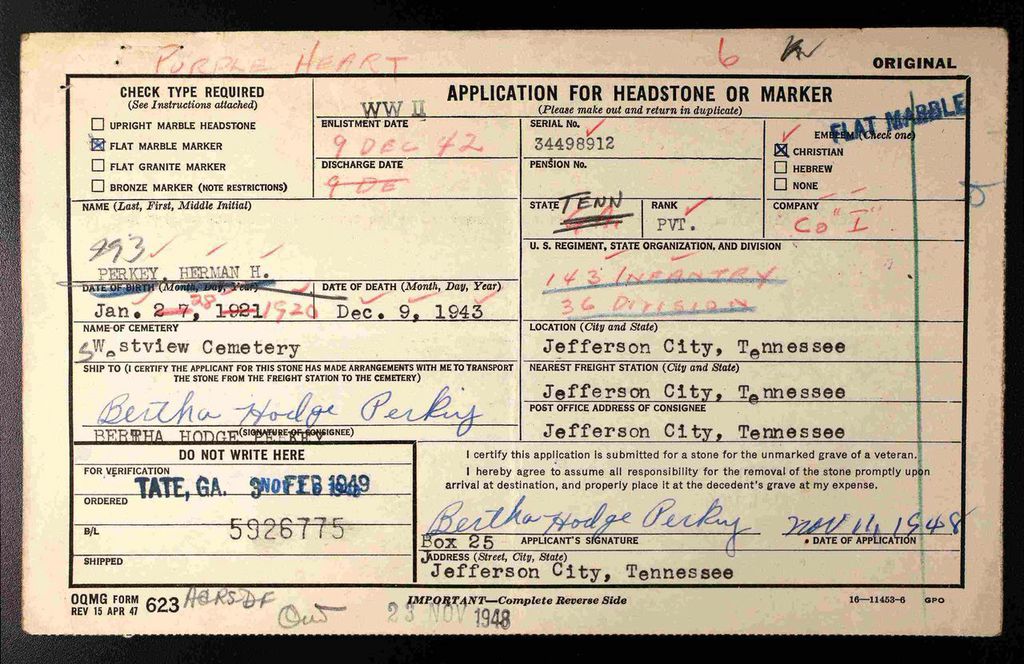 PURPLE HEART
6
ORIGINAL
CHECK TYPE REQUIRED
(See Instructions attached)
UPRIGHT MARBLE HEADSTONE
FLAT MARBLE MARKER
FLAT GRANITE MARKER
BRONZE MARKER (NOTE RESTRICTIONS)
WW II
ENLISTMENT DATE
9 DEC 42
DISCHARGE DATE
9 DE
APPLICATION FOR HEADSTONE OR MARKER
(Please make out and return in duplicate)
SERIAL No.
34498912
PENSION No.
EMBLEM (Check one)
FLAT MARBLE
CHRISTIAN
HEBREW
NONE
STATE TENN
RANK
PVT.
COMPANY
Co "I"
NAME (Last, First, Middle Initial)
493
PERKEY, HERMAN H.
U. S. REGIMENT, STATE ORGANIZATION, AND DIVISION
143 INFANTRY
36 DIVISION
DATE OF BIRTH (Month, Day, Year)
Jan. 2 7, 1921 28 1920
DATE OF DEATH (Month, Day, Year)
Dec. 9, 1943
NAME OF CEMETERY
Westview Cemetery
LOCATION (City and State)
Jefferson City, Tennessee
SHIP TO (I CERTIFY THE APPLICANT FOR THIS STONE HAS MADE ARRANGEMENTS WITH ME TO TRANSPORT
THE STONE FROM THE FREIGHT STATION TO THE CEMETERY)
Bertha Hodge Perkey
BERTHA HODGE PERKEY
(SIGNATURE OF CONSIGNEE)
NEAREST FREIGHT STATION (City and State)
Jefferson City, Tennessee
POST OFFICE ADDRESS OF CONSIGNEE
Jefferson City, Tennessee
DO NOT WRITE HERE
FOR VERIFICATION
TATE, GA.
FEB 1949
ORDERED
B/L
5926775
SHIPPED
I certify this application is submitted for a stone for the unmarked grave of a veteran.
I hereby agree to assume all responsibility for the removal of the stone promptly upon
arrival at destination, and properly place it at the decedent's grave at my expense.
Bertha Hodge Perkey Nov 11, 1948
Box 25
APPLICANT'S SIGNATURE
DATE OF APPLICATION
ADDRESS (Street, City, State)
Jefferson City, Tennessee
OQMG FORM
REV 15 APR 47 623
IMPORTANT—Complete Reverse Side
16—11453-6 GPO
23 NOV 1948